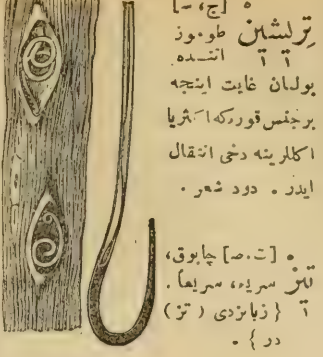 ° [ج، ـ]
ترلیشین طوموز
اتنده
بولنان غایت اینجه
برجنس قوردکه اکثریا
اکللرینه دخی انتقال
ایدر • دود شعر •
• [ت.ص] چابوق،
تیز سریع، سریعاً •
{ زبانزدی ( تز )
در } •